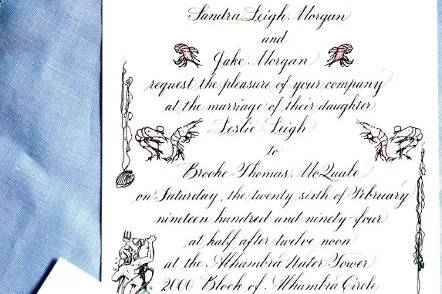 Sandra Leigh Morgan
and
Jake Morgan
request the pleasure of your company
at the marriage of their daughter
Leslie Leigh
to
Brooke Thomas McQuale
on Saturday, the twenty sixth of February
nineteen hundred and ninety-four
at half after twelve noon
at the Alhambra Water Tower
2000 Block of Alhambra Circle